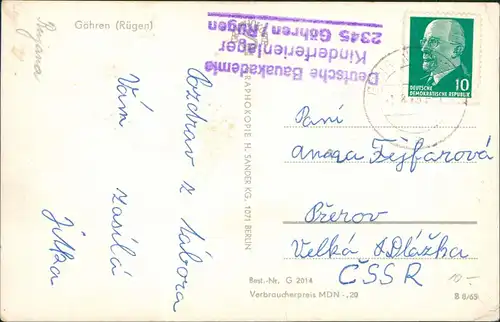 Göhren (Rügen)
Rujana
Deutsche Bauakademie
Kinderferienlager
2345 Göhren/Rügen
Pozdrav z tábora
Vám zasílá
Jitka
PHOKOPIE H. SANDER KG, 1071 BERLIN
10
DEUTSCHE
DEMOKRATISCHE REPUBLIK
Paní
Fejfarová
Přerov
Velká Dlážka
ČSSR
Best.-Nr. G 2014
Verbraucherpreis MDN -,20
B 8/63